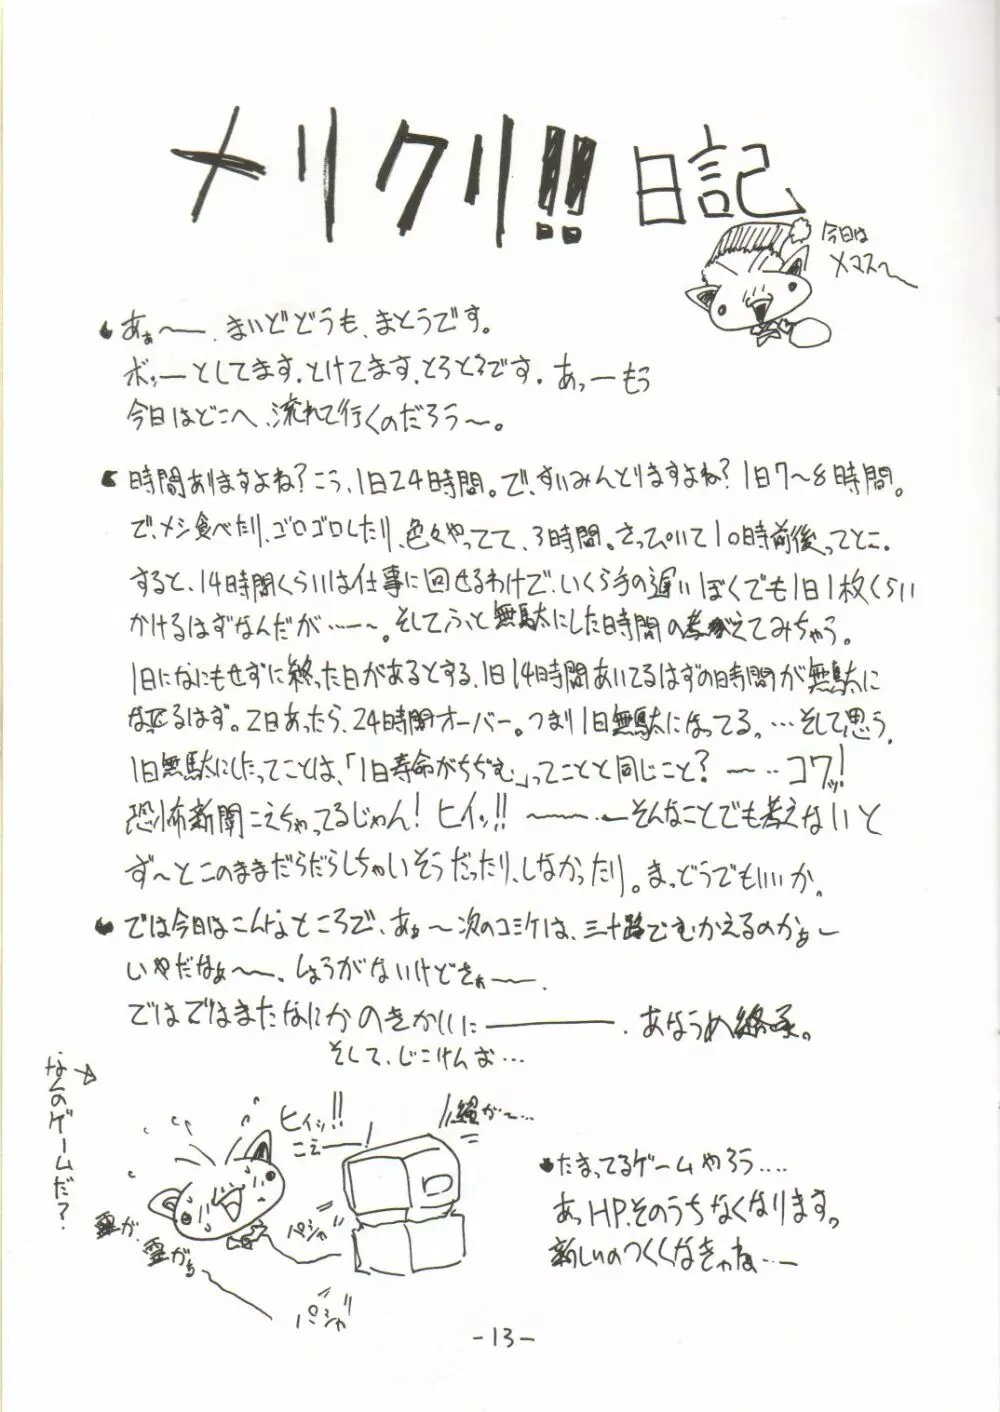 メリクリ!! 日記
今日は
メマス〜
あぁ〜〜. まいどどうも、まとうです。
ボッーとしてます. とけてます. とろとろです. あっーもう
今日はどこへ、流れて行くのだろう〜。
時間ありますよね? こう、1日24時間。で、すいみんとりますよね? 1日7〜8時間。
で、メシ食べたり、ゴロゴロしたり、色々やってて、3時間。さっぴいて10時前後ってとこ。
すると、14時間くらいは仕事に回せるわけで、いくら手の遅いぼくでも1日1枚くらい
かけるはずなんだが……〜。そしてふと無駄にした時間の考えてみちゃう。
1日になにもせずに終った日があるとする、1日14時間あいてるはずの時間が無駄に
なってるはず。2日あったら、24時間オーバー。つまり1日無駄になってる。…そして思う。
1日無駄にしたってことは、「1日寿命がちぢむ」ってことと同じこと? 〜‥コワッ!
恐怖新聞こえちゃってるじゃん! ヒイッ!! 〜〜‥そんなことでも考えないと
ず〜とこのままだらだらしちゃいそうだったり、しなかったり。まっどうでもいいか。
では今日はこんなところで、あぁ〜次のコミケは、三十路でむかえるのかぁ〜
いやだなぁ〜〜. しょうがないけどさぁ〜〜.
ではではまたなにかのきかいに―――. あなうめ終了。
そして、じこけんお…
なんのゲームだ?
ヒイッ!!
こえー
霊が、
霊がぁ
パシャ
パシャ
たまってるゲームやろう….
あっHP、そのうちなくなります。
新しいのつくんなきゃね…ー
-13-